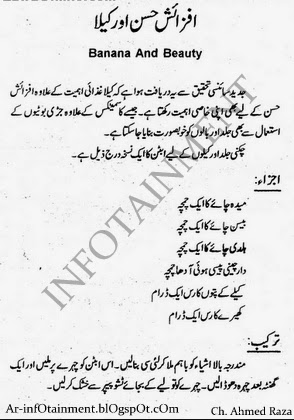 افزائش حسن اور کیلا
Banana And Beauty
جدید سائنسی تحقیق سے یہ دریافت ہوا ہے کہ کیلا غذائی اہمیت کے علاوہ افزائش
حسن کے لیے بھی اپنی خاصی اہمیت رکھتا ہے۔ جیسے کاسمیٹکس کے علاوہ جڑی بوٹیوں کے
استعمال سے بھی جلد اور بالوں کو خوبصورت بنایا جا سکتا ہے۔
چکنی جلد اور کیلوں کے لیے ابٹن کا ایک نسخہ درج ذیل ہے۔
اجزاء:
میدہ چائے کا ایک چمچہ
بیسن چائے کا ایک چمچہ
ہلدی چائے کا ایک چمچہ
دار چینی پیسی ہوئی آدھا چمچہ
کیلے کے پتوں کا رس ایک ڈرام
کھیرے کا رس ایک ڈرام
ترکیب:
مندرجہ بالا اشیاء کو باہم ملا کر لئی سی بنالیں۔ اس ابٹن کو چہرے پر ملیں اور ایک
گھنٹہ بعد چہرہ دھو ڈالیں۔ چہرے کو تولیے کے بجائے ٹشو پیپر سے خشک کر لیں۔
INFOTAINMENT
Ar-infOtainment.blOgspOt.cOm
Ch. Ahmed Raza